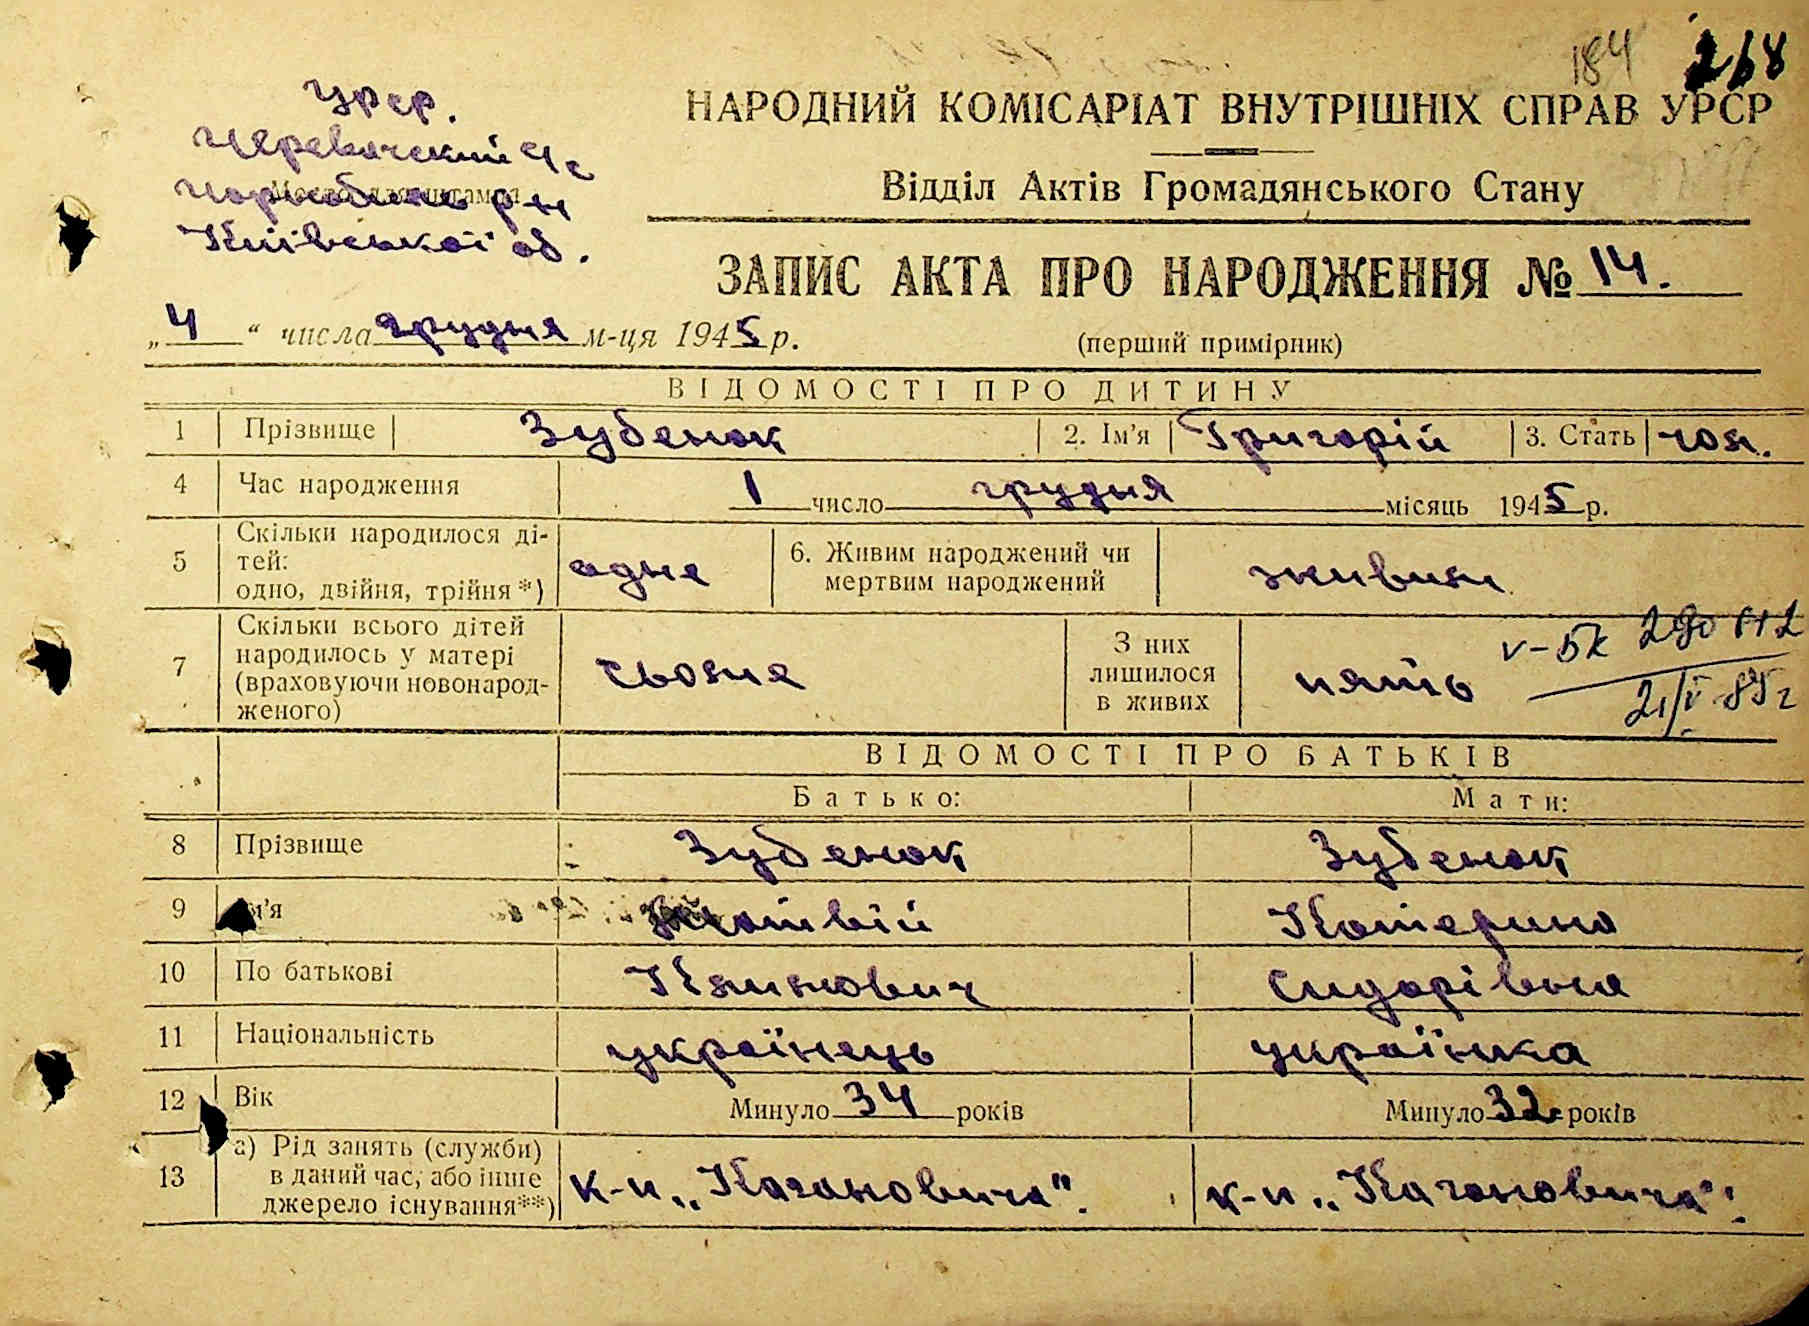 184 268
УРСР.
НАРОДНИЙ КОМІСАРІАТ ВНУТРІШНІХ СПРАВ УРСР
Черевачський с/с
Місце для штампа
Чорнобиль р-н
Відділ Актів Громадянського Стану
Київської об.
ЗАПИС АКТА ПРО НАРОДЖЕННЯ № 14.
„4“ числа грудня м-ця 1945 р.
(перший примірник)
ВІДОМОСТІ ПРО ДИТИНУ
1 Прізвище Зубенок 2. Ім'я Григорій 3. Стать чол.
4 Час народження 1 число грудня місяць 1945 р.
5 Скільки народилося ді-
тей:
одно, двійня, трійня *) одне 6. Живим народжений чи
мертвим народжений живим
7 Скільки всього дітей
народилось у матері
(враховуючи новонарод-
женого) сьоме З них
лишилося
в живих пять
V-БК 290812
21/V-85 г
ВІДОМОСТІ ПРО БАТЬКІВ
Батько: Мати:
8 Прізвище Зубенок Зубенок
9 м'я Матвій Катерина
10 По батькові Климович Сидорівна
11 Національність українець українка
12 Вік Минуло 34 років Минуло 32 років
13 а) Рід занять (служби)
в даний час, або інше
джерело існування**) к-п „Кагановича". к-п „Кагановича".